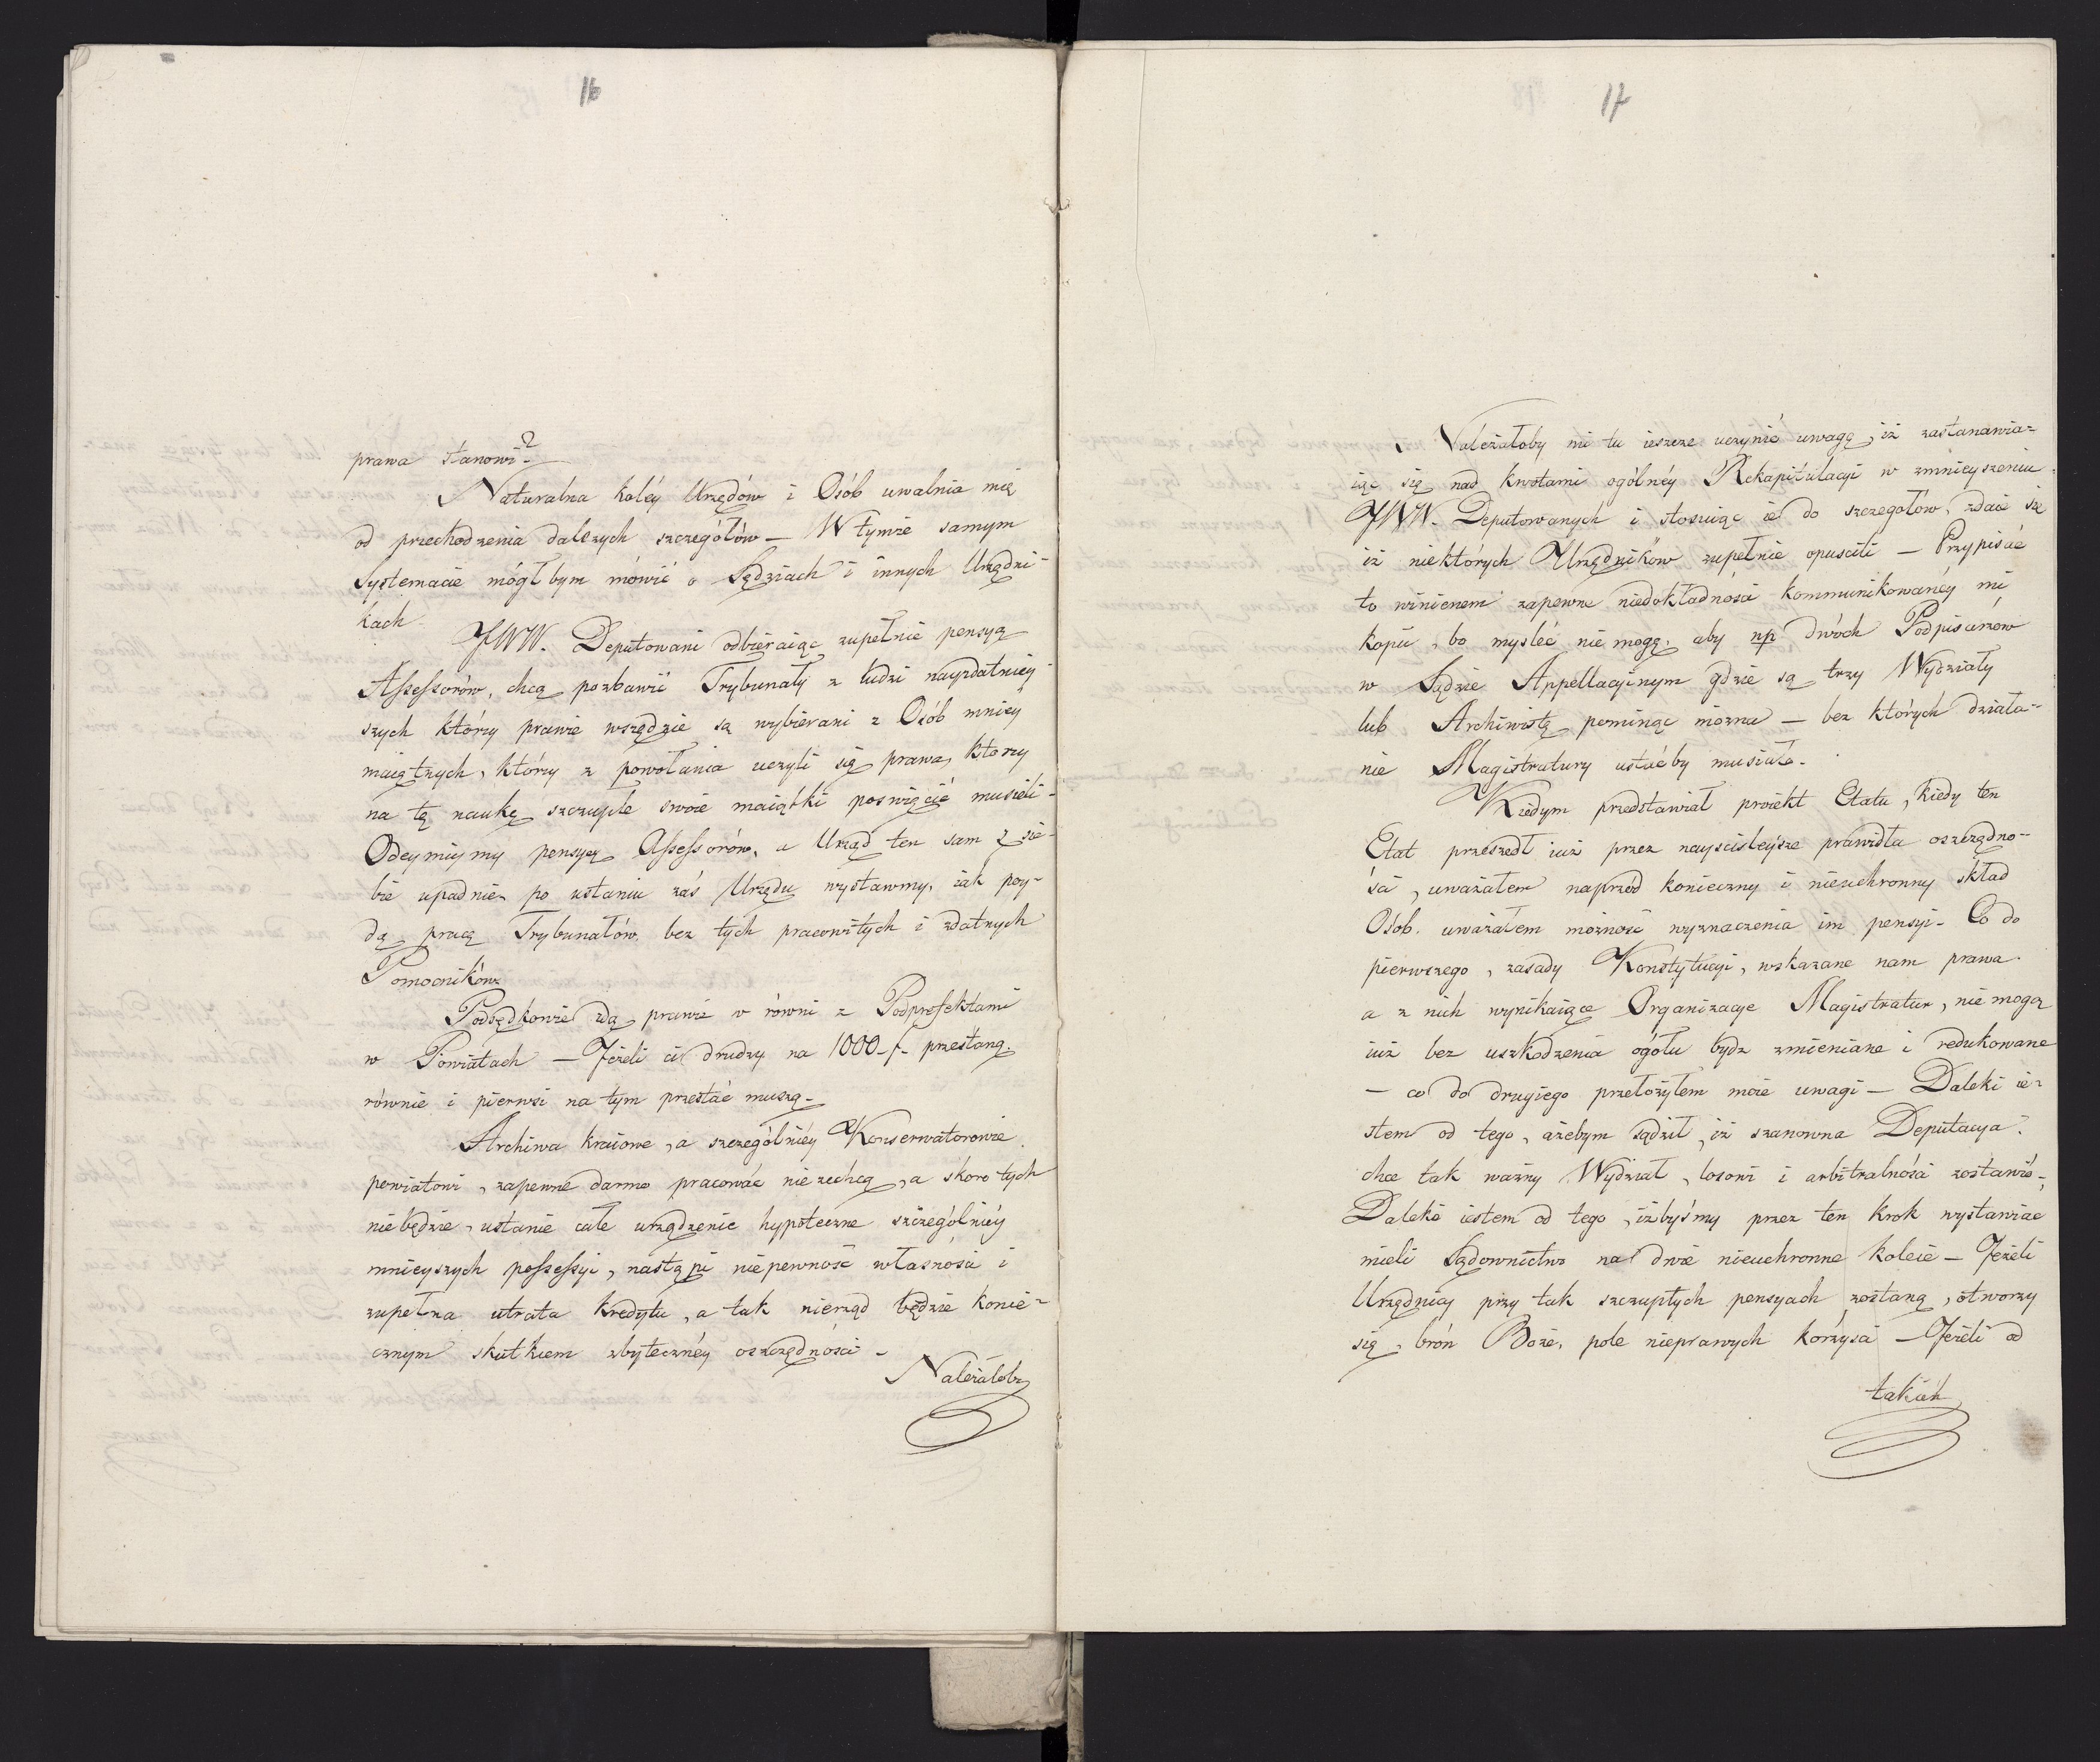 16
prawa stanowi?
Naturalna koléy Urzędów i Osób uwalnia mię
od przechodzenia dalszych szczegółów — W tymże samym
Systemacie mógłbym mówić o Sędziach i innych Urzędni-
kach
JWW. Deputowani odbieraiąc zupełnie pensyą
Assessorów, chcą pozbawić Trybunały z ludzi nayzdatniey
szych którzy prawie wszędzie są wybierani z Osób mniey
maiętnych, którzy z powołania uczyli się prawa, którzy
na tę naukę szczupłe swoie maiątki poswięcić musieli-
Odeymiymy pensyą Assessorów, a Urząd ten sam z sie-
bie upadnie, po ustaniu zaś Urzędu wystawmy, iak poy-
dą pracą Trybunałów, bez tych pracowitych i zdatnych
Pomocników
Podsędkowie idą prawie w równi z Podprefektami
w Powiatach — Jeżeli ci drudzy na 1000 f. przestaną.
równie i pierwsi na tym przestać muszą-
Archiwa kraiowe, a szczególniéy Konserwatorowie
powiatowi, zapewne darmo pracować niezechcą, a skoro tych
niebędzie, ustanie całe urządzenie hypoteczne szczególniéy
mnieyszych possessyi, nastąpi niepewność własności i
zupełna utrata kredytu, a tak nierząd będzie konie-
cznym skutkiem zbyteczney oszczędności -
Należałoby
17
Należałoby mi tu ieszcze uczynić uwagę, iż zastanawia-
iąc się nad kwotami ogólnéy Rekapitulacyi w zmnieyszeniu
JWW. Deputowanych i stosuiąc ie do szczegółów, zdaie się
iż niektórych Urzędników zupełnie opuscili — Przypisać
to winienem zapewne niedokładności kommunikowanéy mi
kopii, bo mysleć nie mogę, aby np dwóch Podpisarzów
w Sądzie Appellacyinym gdzie są trzy Wydziały
lub Archiwistę pominąc można — bez których działa-
nie Magistratury ustać by musiało.
Kiedym przedstawiał proiekt Etatu, kiedy ten
Etat przeszedł iuż przez nayscisleysze prawidła oszczędno-
ści, uważałem naprzód konieczny i nieuchronny skład
Osób, uważałem możność wyznaczenia im pensyi- Co do
pierwszego, zasady Konstytucyi, wskazane nam prawa
a z nich wynikaiące Organizacye Magistratur, nie mogą
iuż bez uszkodzenia ogółu bydz zmieniane i redukowane
— co do drugiego przełożyłem moie uwagi — Daleki ie-
stem od tego, ażebym sądził, iż szanowna Deputacya
chce tak ważny Wydział, losowi i arbitralności zostawić-
Daleki iestem od tego, iżbyśmy przez ten krok wystawiac
mieli Sądownictwo na dwie nieuchronne koleie — Jeżeli
Urzędnicy przy tak szczupłych pensyach zostaną, otworzy
się, broń Boże, pole nieprawych korzyści — Jeżeli od
takich